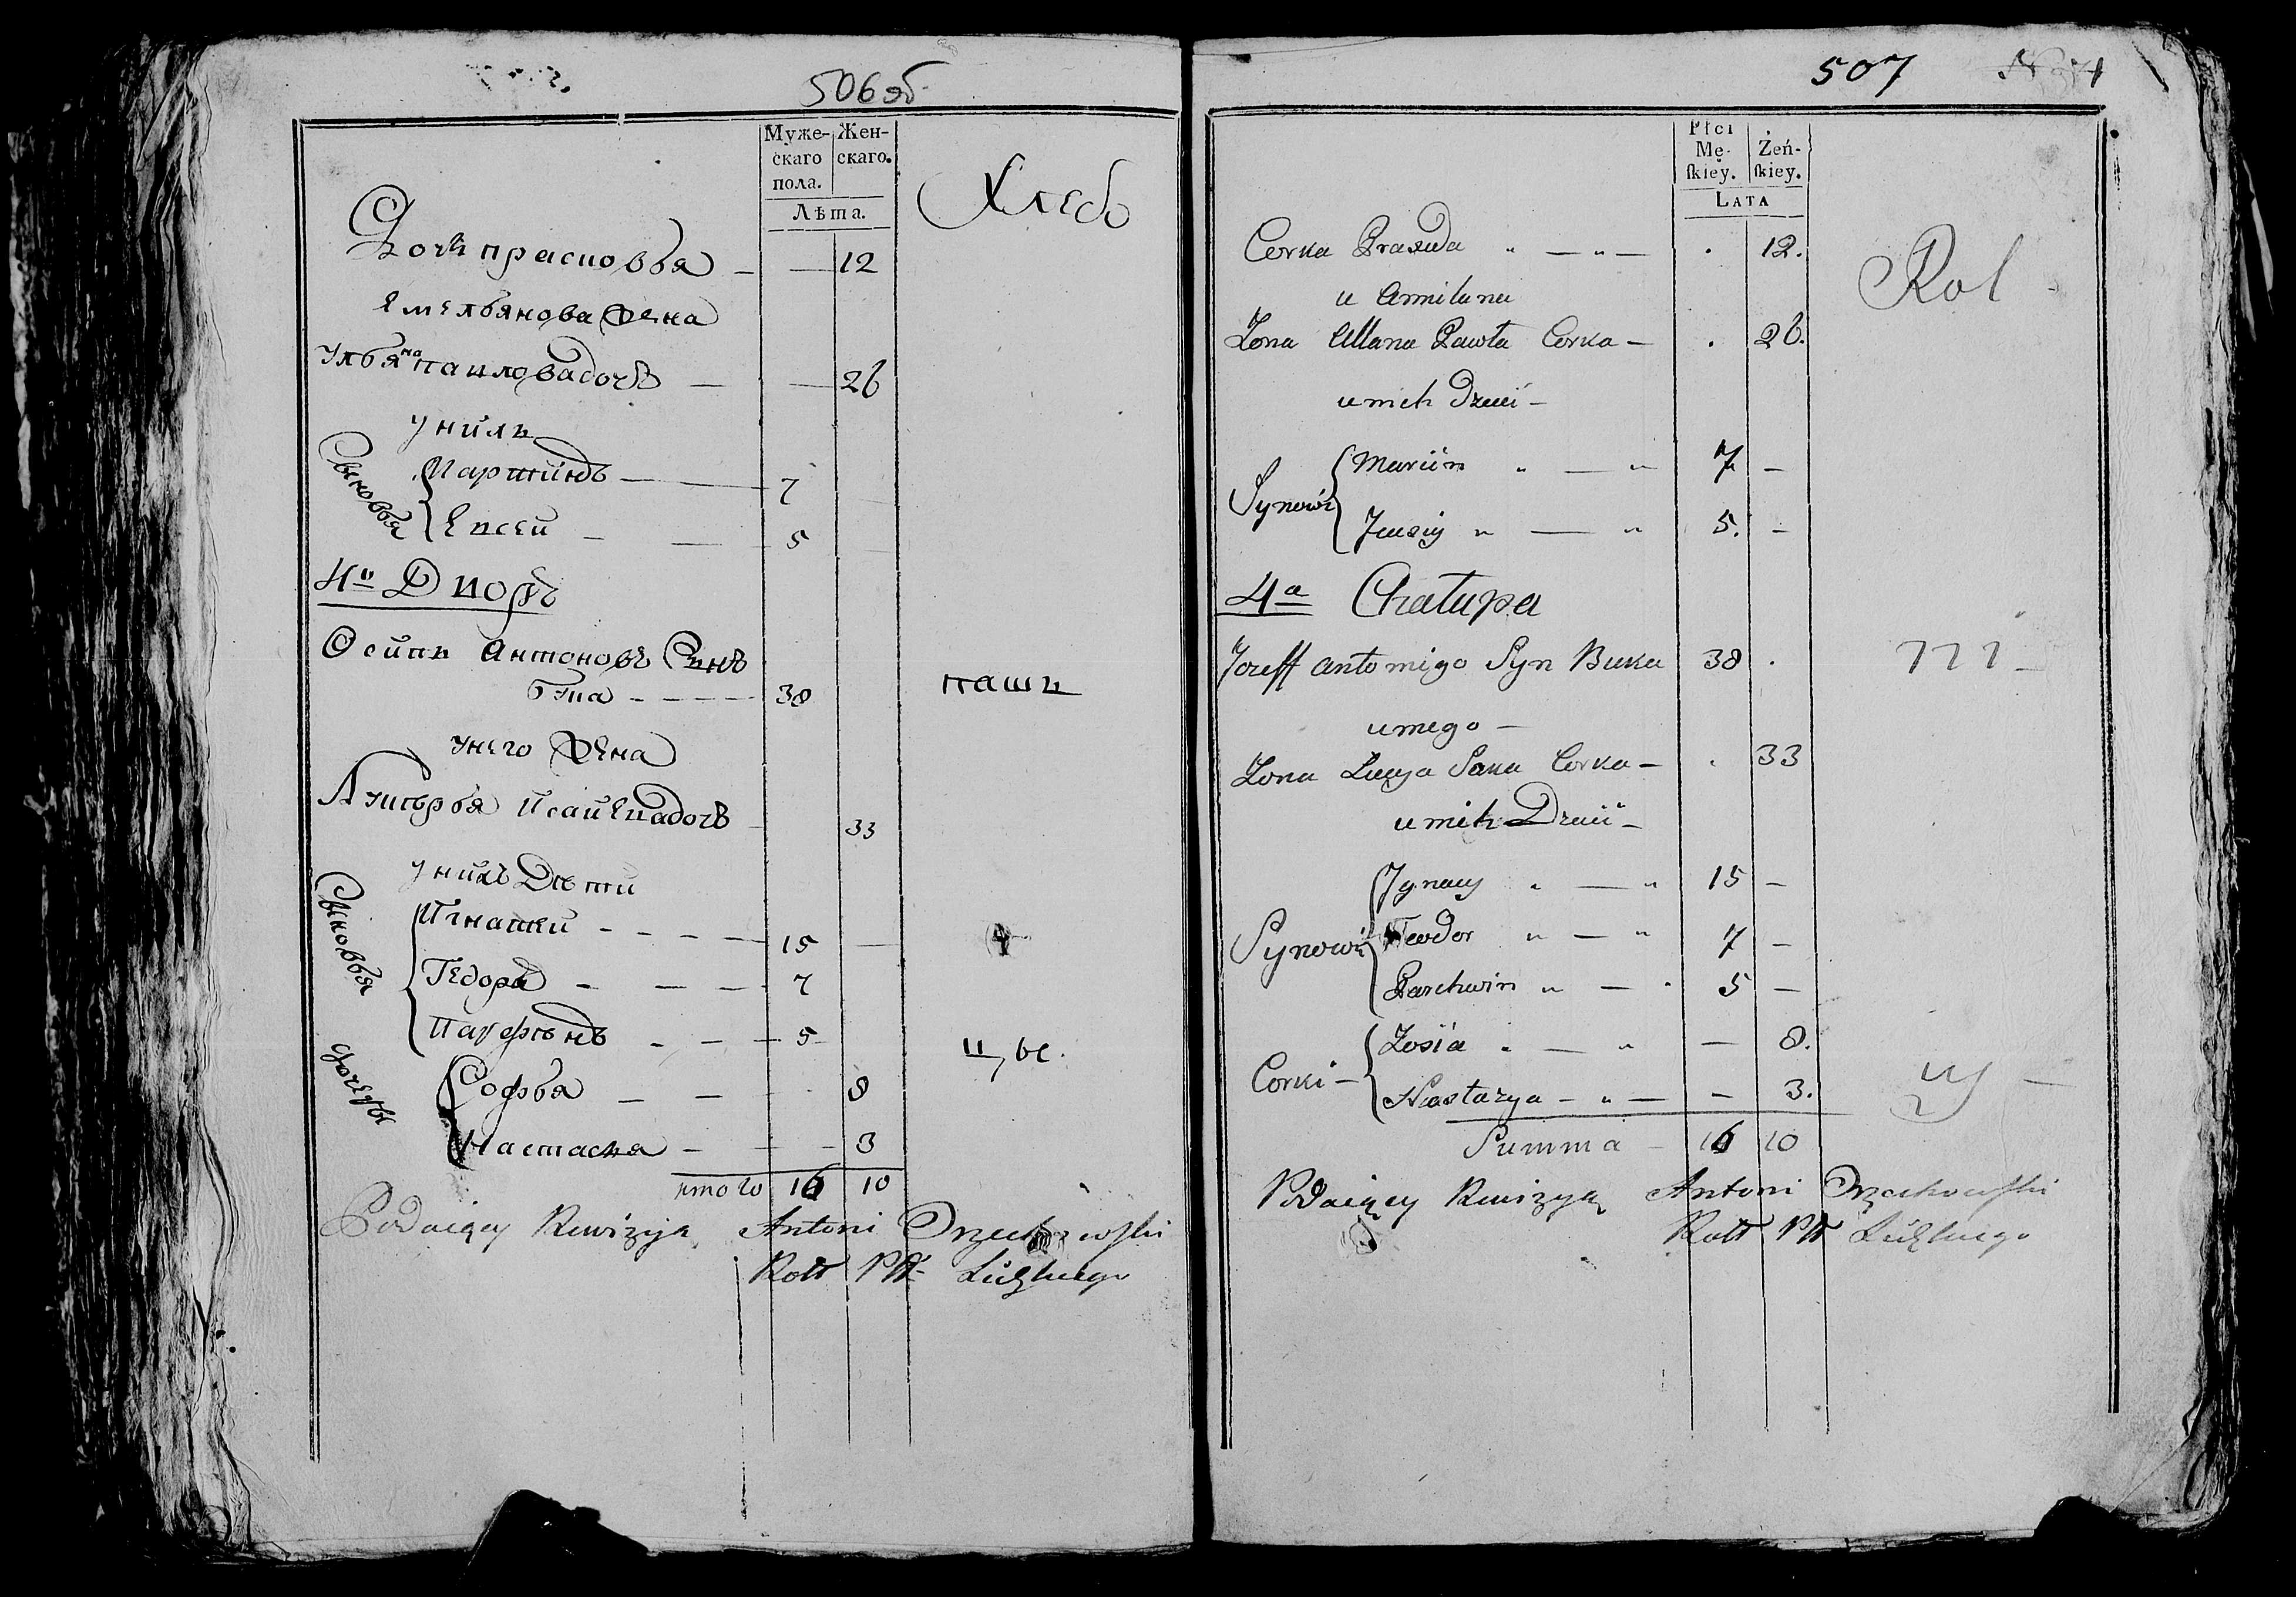 506об
Муже- Жен-
скаго скаго.
пола.
Лѣта.
Хлеб
Дочь прасковья — — 12
Емельянова жена
Ульяна павловадочь — — 26
у нихъ
Сыновья
Мартинъ — 7
Евсей — — 5
4й Дворъ
Осипъ Антоновъ Сынъ
Бука - - - - 38
пашъ
унего жена
Лукерья Исаиевадочь 33
унихъ Дѣти
Сыновья
Игнатей - - - — 15 —
Тедоръ — — — 7
Парфенъ — — — 5
цы.
дочеры
Софья — — 8
Настасья — — — 3
итого 16 10
Podaiący Rewizyją Antoni Orzechowski
Rott Ptt Luckiego
507
Płci
Mę- Żeń-
skiey. skiey.
LATA
Corka Praxeda " — " — . 12.
Rol
u Amiluna
Zona Ullana Pawła Corka — . 26.
unich Dzieci —
Synowi
Marcin " — " 7 —
Jewsiy " — " 5. —
4a Chałupa
Jozeff Antoniego Syn Buka 38 .
uniego —
Zona Łucya Saka Corka — . 33
unich Dzieci —
Synowi
Jgnacy " — " 15 —
Teodor " — " 7 —
Parchwin " — " 5 —
Corki —
Zosia " — " — 8.
Nastazya — " — — 3.
Summa — 16 10
Podaiący Rewizyą Antoni Orzechowski
Rott Ptt Luckiego